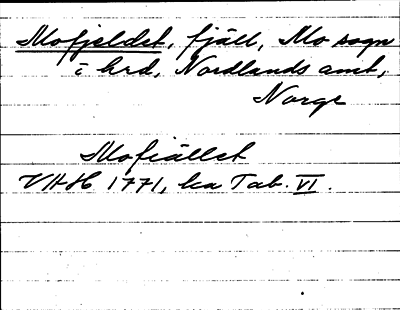 Mofjeldet, fjäll, Mo sogn
i hrd, Nordlands amt,
Norge
Mofiället
VHH 1771, ka Tab. VI.